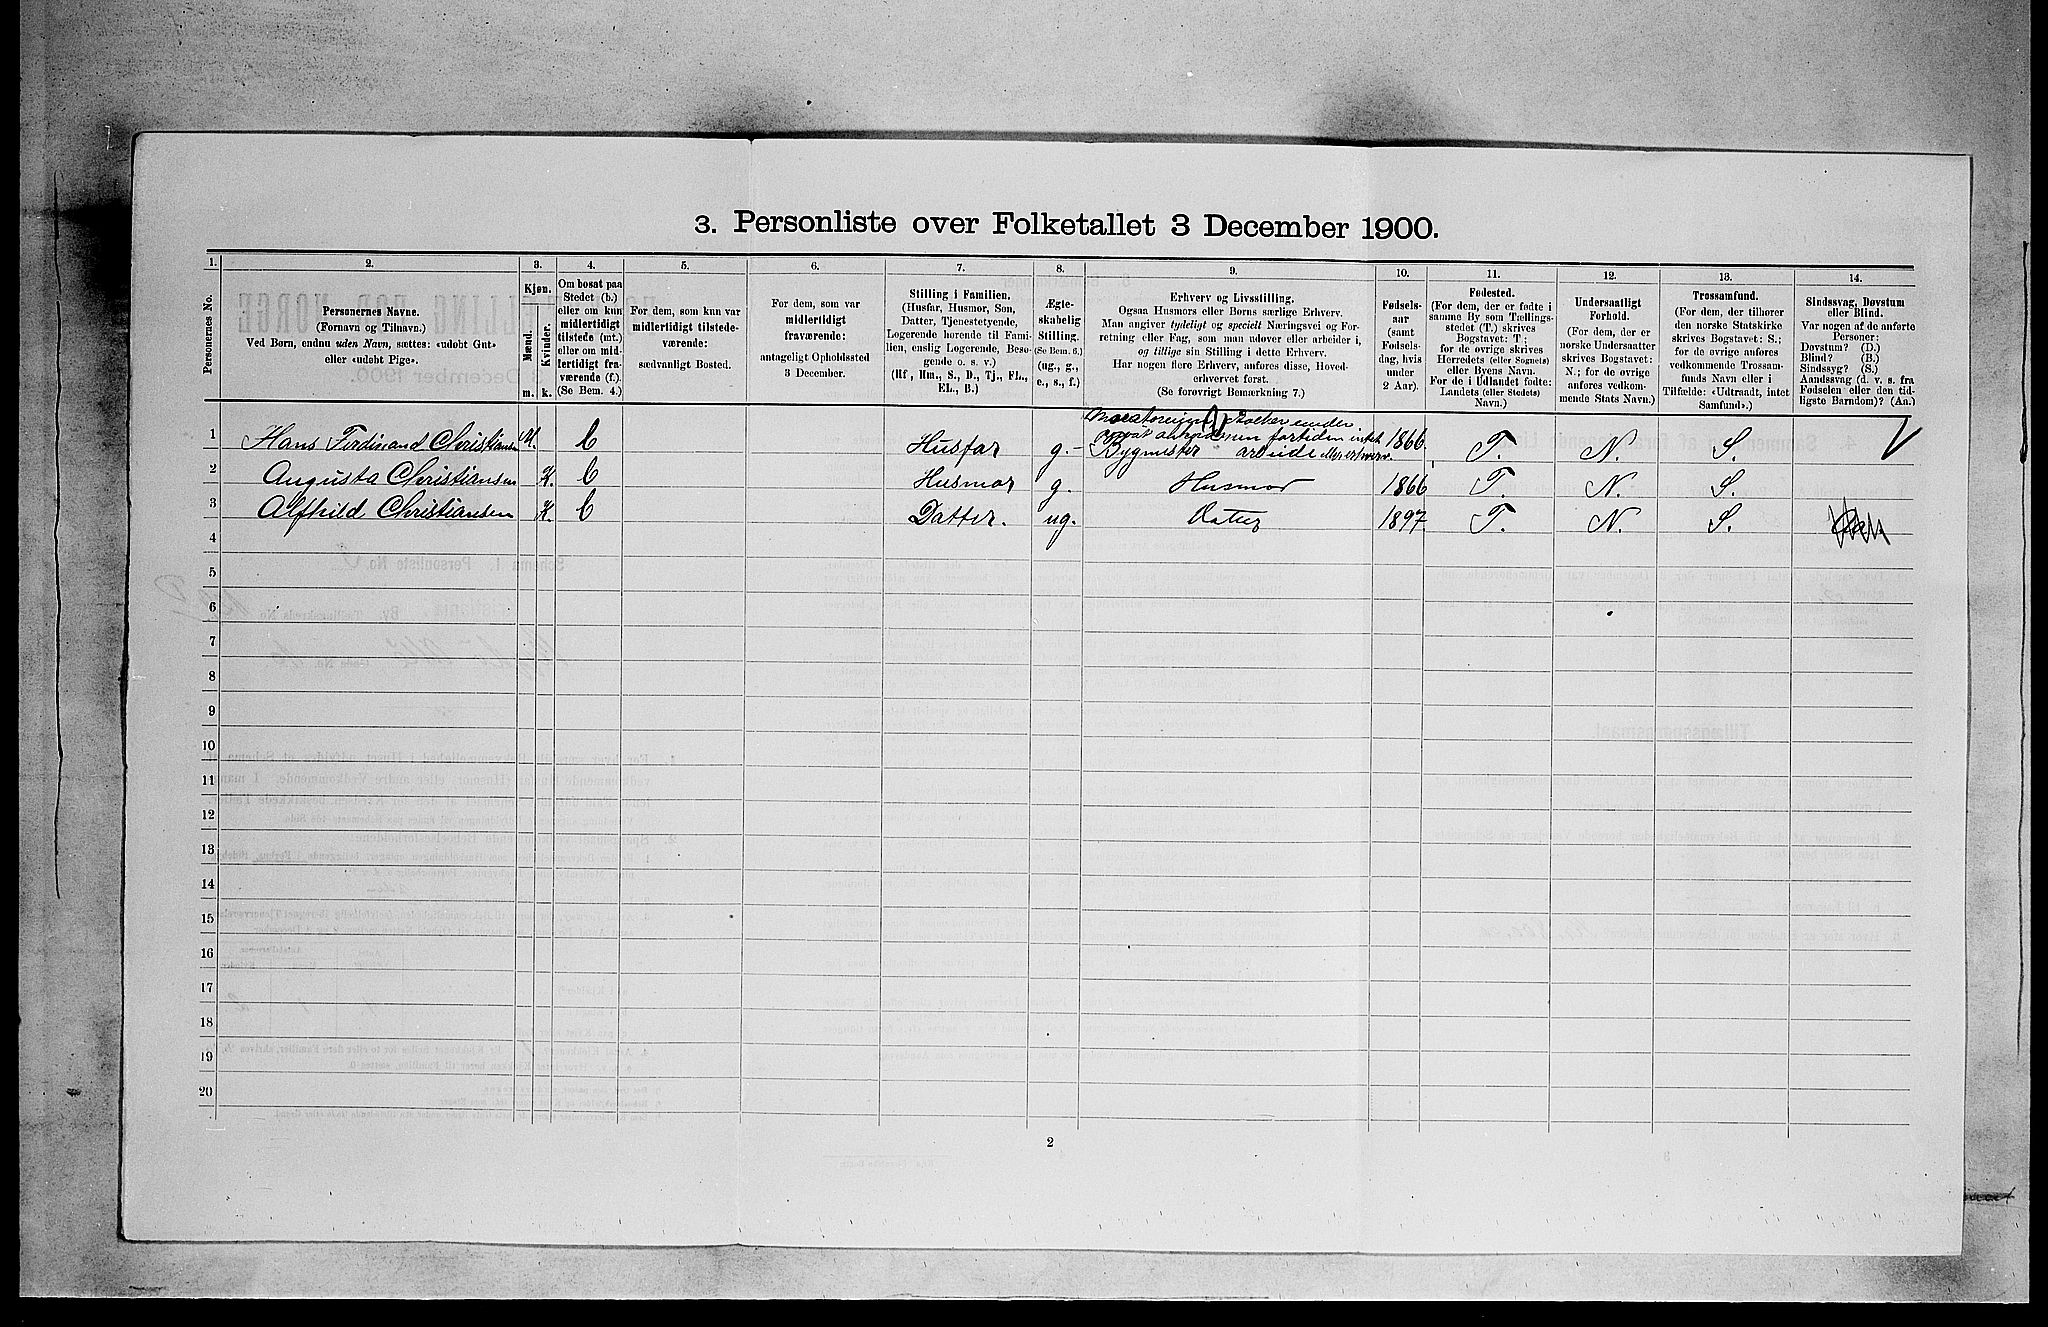 3. Personliste over Folketallet 3 December 1900.
1. 2. 3. 4. 5. 6. 7. 8. 9. 10. 11. 12. 13. 14.
Personernes No.
Personernes Navne.
(Fornavn og Tilnavn.)
Ved Børn, endnu uden Navn, sættes: «udøbt Gut»
eller «udøbt Pige».
Kjøn.
Mænd.
Kvinder.
m. k.
Om bosat paa
Stedet (b.)
eller om kun
midlertidigt
tilstede (mt.)
eller om mid-
lertidigt fra-
værende (f.).
(Se Bem. 4.)
For dem, som kun var
midlertidigt tilstede-
værende:
sædvanligt Bosted.
For dem, som var
midlertidigt
fraværende:
antageligt Opholdssted
3 December.
Stilling i Familien.
(Husfar, Husmor, Søn,
Datter, Tjenestetyende,
Logerende hørende til Fami-
lien, enslig Logerende, Besø-
gende o. s. v.)
(Hf, Hm., S., D., Tj., FL.,
EL., B.)
Ægte-
skabelig
Stilling.
(Se Bem. 6.)
(ug., g.,
e., s., f.)
Erhverv og Livsstilling.
Ogsaa Husmors eller Børns særlige Erhverv.
Man angiver tydeligt og specielt Næringsvei og For-
retning eller Fag, som man udøver eller arbeider i,
og tillige sin Stilling i dette Erhverv.
Har nogen flere Erhverv, anføres disse, Hoved-
erhvervet først.
(Se forøvrigt Bemærkning 7.)
Fødsels-
aar
(samt
Fødsels-
dag, hvis
under
2 Aar).
Fødested.
(For dem, der er fødte i
samme By som Tællings-
stedet (T.) skrives
Bogstavet: T;
for de øvrige skrives
Herredets (eller Sognets)
eller Byens Navn.
For de i Udlandet fødte:
Landets (eller Stedets)
Navn.)
Undersaatligt
Forhold.
(For dem, der er
norske Undersaatter
skrives Bogstavet:
N.; for de øvrige
anføres vedkom-
mende Stats Navn.)
Trossamfund.
(For dem, der tilhører
den norske Statskirke
skrives Bogstavet: S.;
for de øvrige anføres
vedkommende Trossam-
funds Navn eller i
Tilfælde: «Udtraadt, intet
Samfund».)
Sindssvag, Døvstum
eller Blind.
Var nogen af de anførte
Personer:
Døvstum? (D.)
Blind? (B.)
Sindssyg? (S.)
Aandssvag (d. v. s. fra
Fødselen eller den tid-
ligste Barndom)? (Aa.)
1 Hans Ferdinand Christiansen M. b Husfar g. Bygmester arbeide 1866 T. N. S.
2 Augusta Christiansen K. b Husmor g. Husmor 1866 T. N. S.
3 Alfhild Christiansen K. b Datter. ug. Datter 1897 T. N. S.
4
5
6
7
8
9
10
11
12
13
14
15
16
17
18
19
20
2